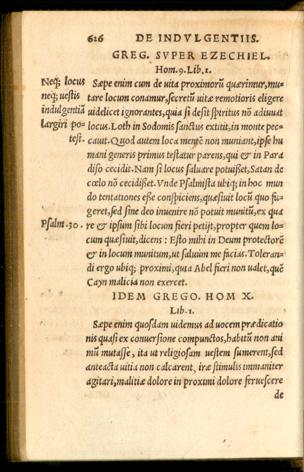 626 DE INDVLGENTIIS.
GREG. SVPER EZECHIEL.
Hom. 9. Lib. 1.
Neq; locus
neq; uestis
indulgentiã
largiri po-
test.
Sæpe enim cum de uita proximorũ quærimur, mu-
tare locum conamur, secretũ uitæ remotioris eligere
uidelicet ignorantes, quia si desit spiritus nõ adiuvat
locus. Loth in Sodomis sanctus extitit, in monte pec-
cauit. Quod autem loca mentẽ non muniant, ipse hu
mani generis primus testatur parens, qui & in Para
diso cecidit. Nam si locus saluare potuisset, Satan de
cœlo nõ cecidisset. Vnde Psalmista ubiq; in hoc mun
do tentationes esse conspiciens, quæsiuit locũ quo fu-
geret, sed sine deo inuenire nõ potuit munitũ, ex qua
Psalm. 30.
re & ipsum sibi locum fieri petijt, propter quem lo-
cum quæsiuit, dicens: Esto mihi in Deum protectorẽ
& in locum munitum, ut saluum me facias. Toleran-
di ergo ubiq; proximi, quia Abel fieri non ualet, quẽ
Cayn malicia non exercet.
IDEM GREGO. HOM X.
Lib. 1.
Sæpe enim quosdam uidemus ad uocem prædicatio
nis quasi ex conuersione compunctos, habitũ non ani
mũ mutasse, ita ut religiosam uestem sumerent, sed
anteacta uitia non calcarent, iræ stimulis immaniter
agitari, malitiæ dolore in proximi dolore feruescere
de